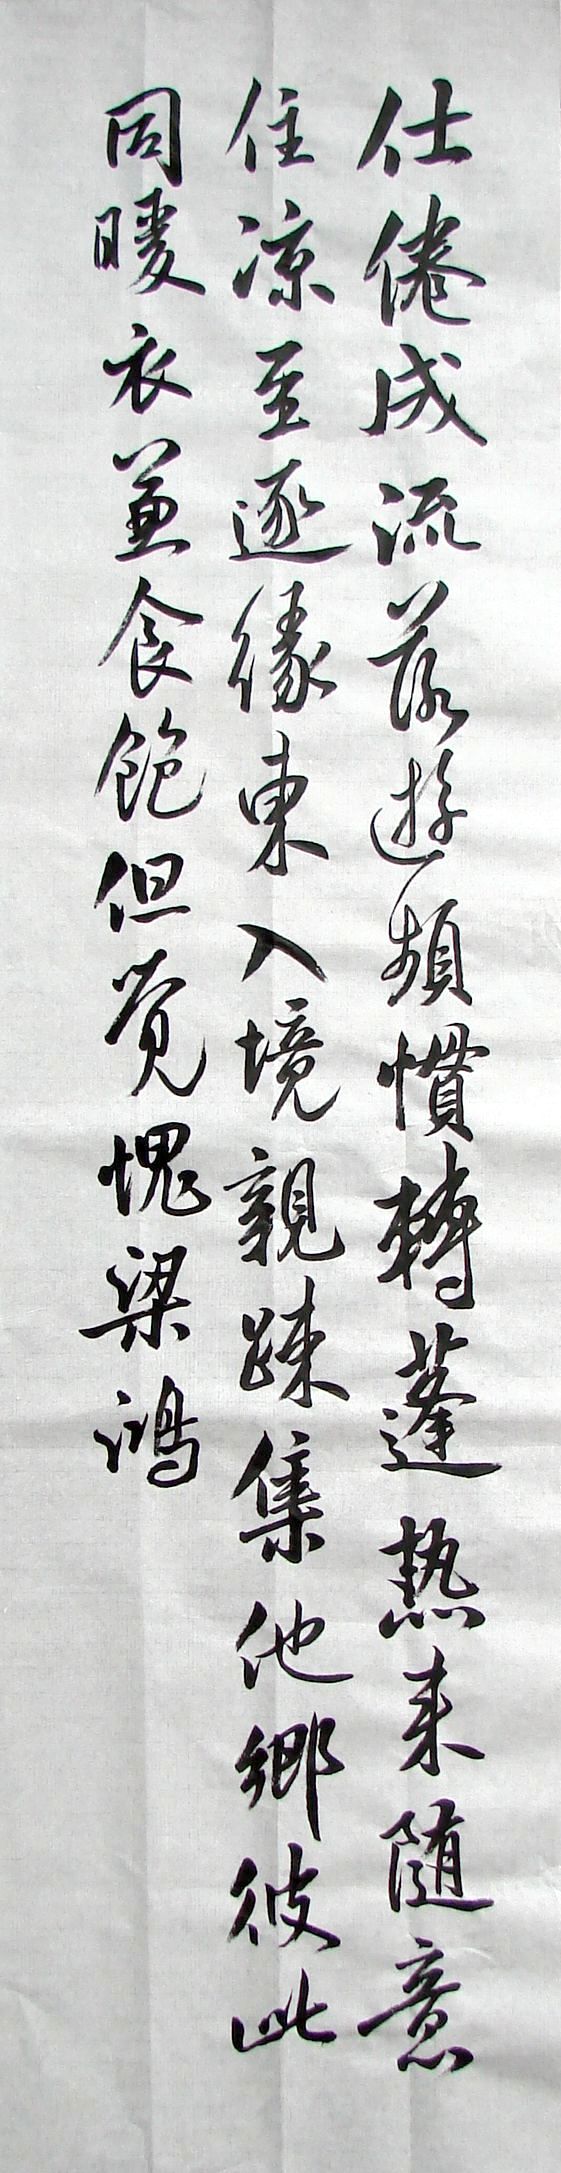 仕倦成流落遊頻慣轉蓬熱来随意
住凉至逐緣東入境親疎集他鄉彼此
同暖衣兼食飽但覺愧梁鴻